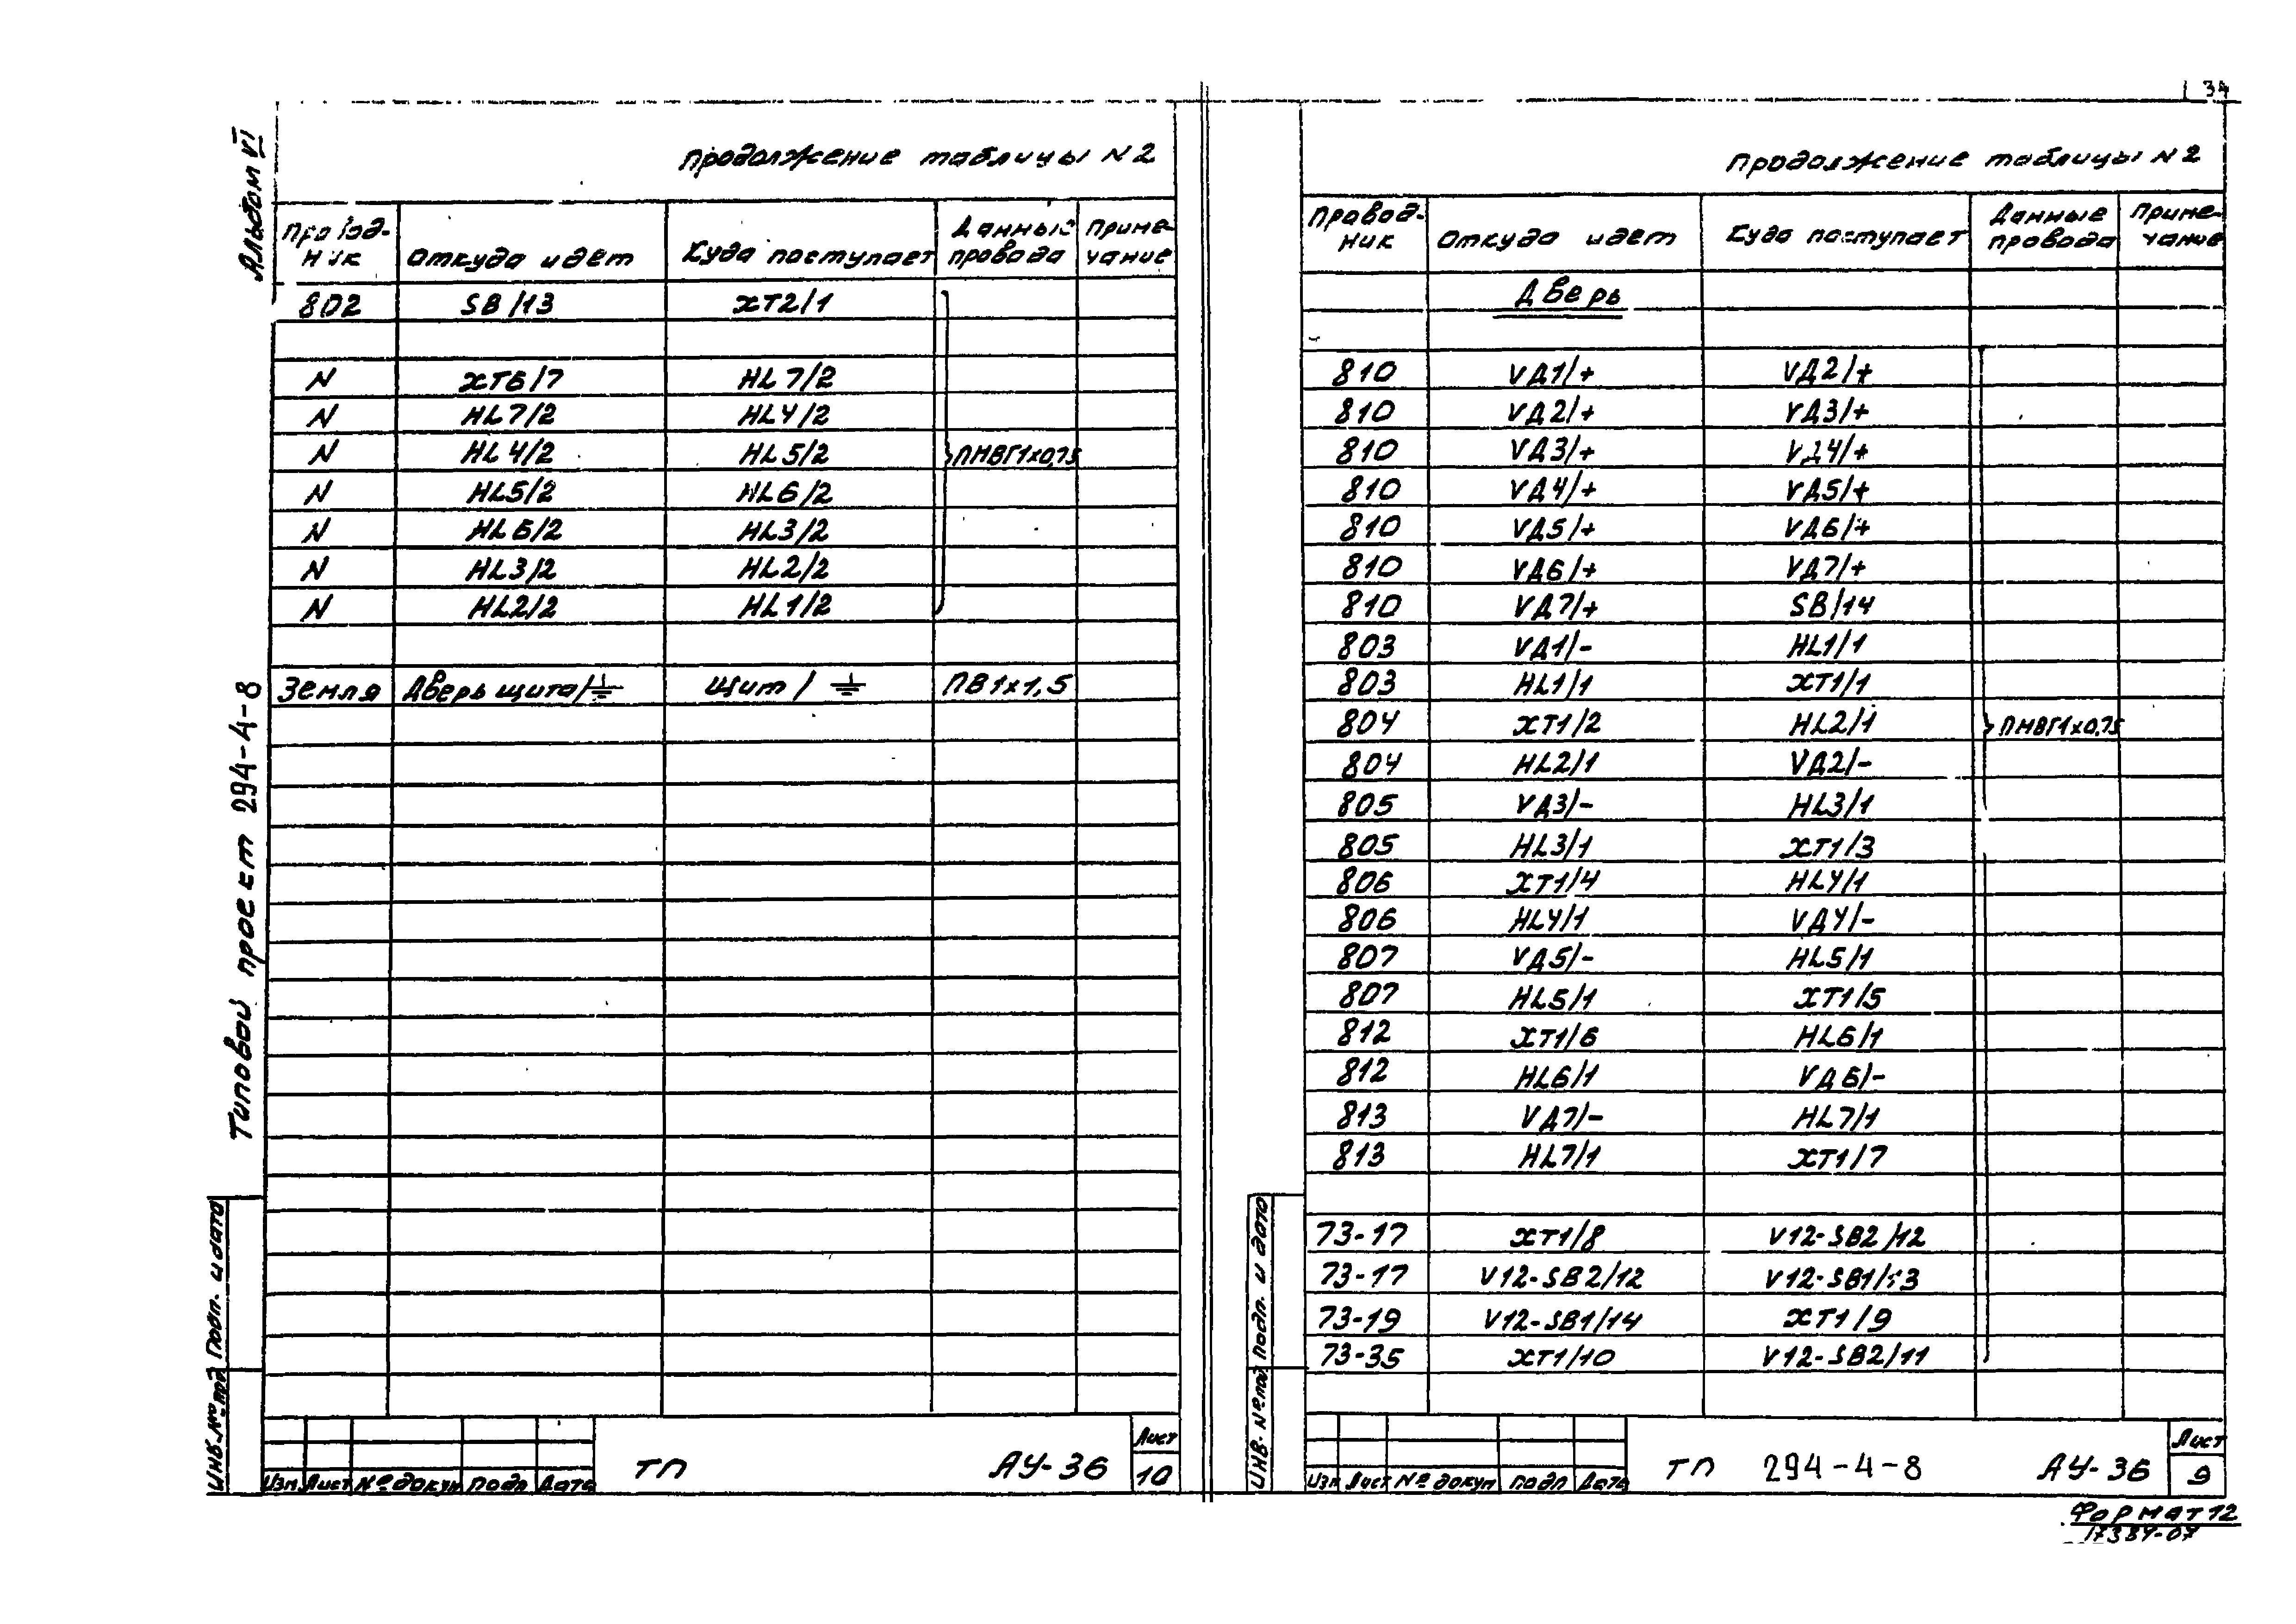 34
Альбом VI
Типовой проект 294-4-8
Подп. и дата
Инв. № под
Продолжение таблицы N2
Провод-ник Откуда идет Куда поступает Данные провода Приме-чание
802 SB/13 XT2/1
N XT6/7 HL7/2
N HL7/2 HL4/2
N HL4/2 HL5/2 ПМВГ1х0,75
N HL5/2 HL6/2
N HL6/2 HL3/2
N HL3/2 HL2/2
N HL2/2 HL1/2
Земля Дверь щита/⏚ Щит/⏚ ПВ1х1,5
Изм. Лист № докум подп Дата
ТП АУ-36 Лист 10
Продолжение таблицы N2
Провод-ник Откуда идет Куда поступает Данные провода Приме-чание
Дверь
810 VД1/+ VД2/+
810 VД2/+ VД3/+
810 VД3/+ VД4/+
810 VД4/+ VД5/+
810 VД5/+ VД6/+
810 VД6/+ VД7/+
810 VД7/+ SB/14
803 VД1/- HL1/1
803 HL1/1 XT1/1
804 XT1/2 HL2/1 ПМВГ1х0,75
804 HL2/1 VД2/-
805 VД3/- HL3/1
805 HL3/1 XT1/3
806 XT1/4 HL4/1
806 HL4/1 VД4/-
807 VД5/- HL5/1
807 HL5/1 XT1/5
812 XT1/6 HL6/1
812 HL6/1 VД6/-
813 VД7/- HL7/1
813 HL7/1 XT1/7
73-17 XT1/8 V12-SB2/12
73-17 V12-SB2/12 V12-SB1/13
73-19 V12-SB1/14 XT1/9
73-35 XT1/10 V12-SB2/11
Инв. № под Подп. и дата
Изм Лист № докум подп Дата
ТП 294-4-8 АУ-36 Лист 9
Формат 12
17384-07